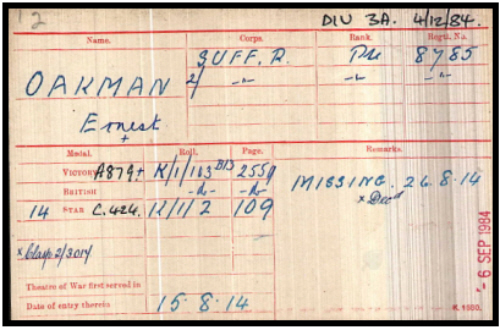 12 DIV 3A. 4/12/84.
Name. Corps. Rank. Regtl. No.
SUFF. R. Pte 8785
OAKMAN 2/ -"- -"- -"-
Ernest
+
Medal. Roll. Page. Remarks.
VICTORY A879+ K/1/163 B13 2559
BRITISH -"- -"- MISSING. 26.8.14
14 STAR C.424. K/1/2 109 x Decd
x Clasp 2/3014
Theatre of War first served in
Date of entry therein 15.8.14
- 6 SEP 1984
K. 1380.